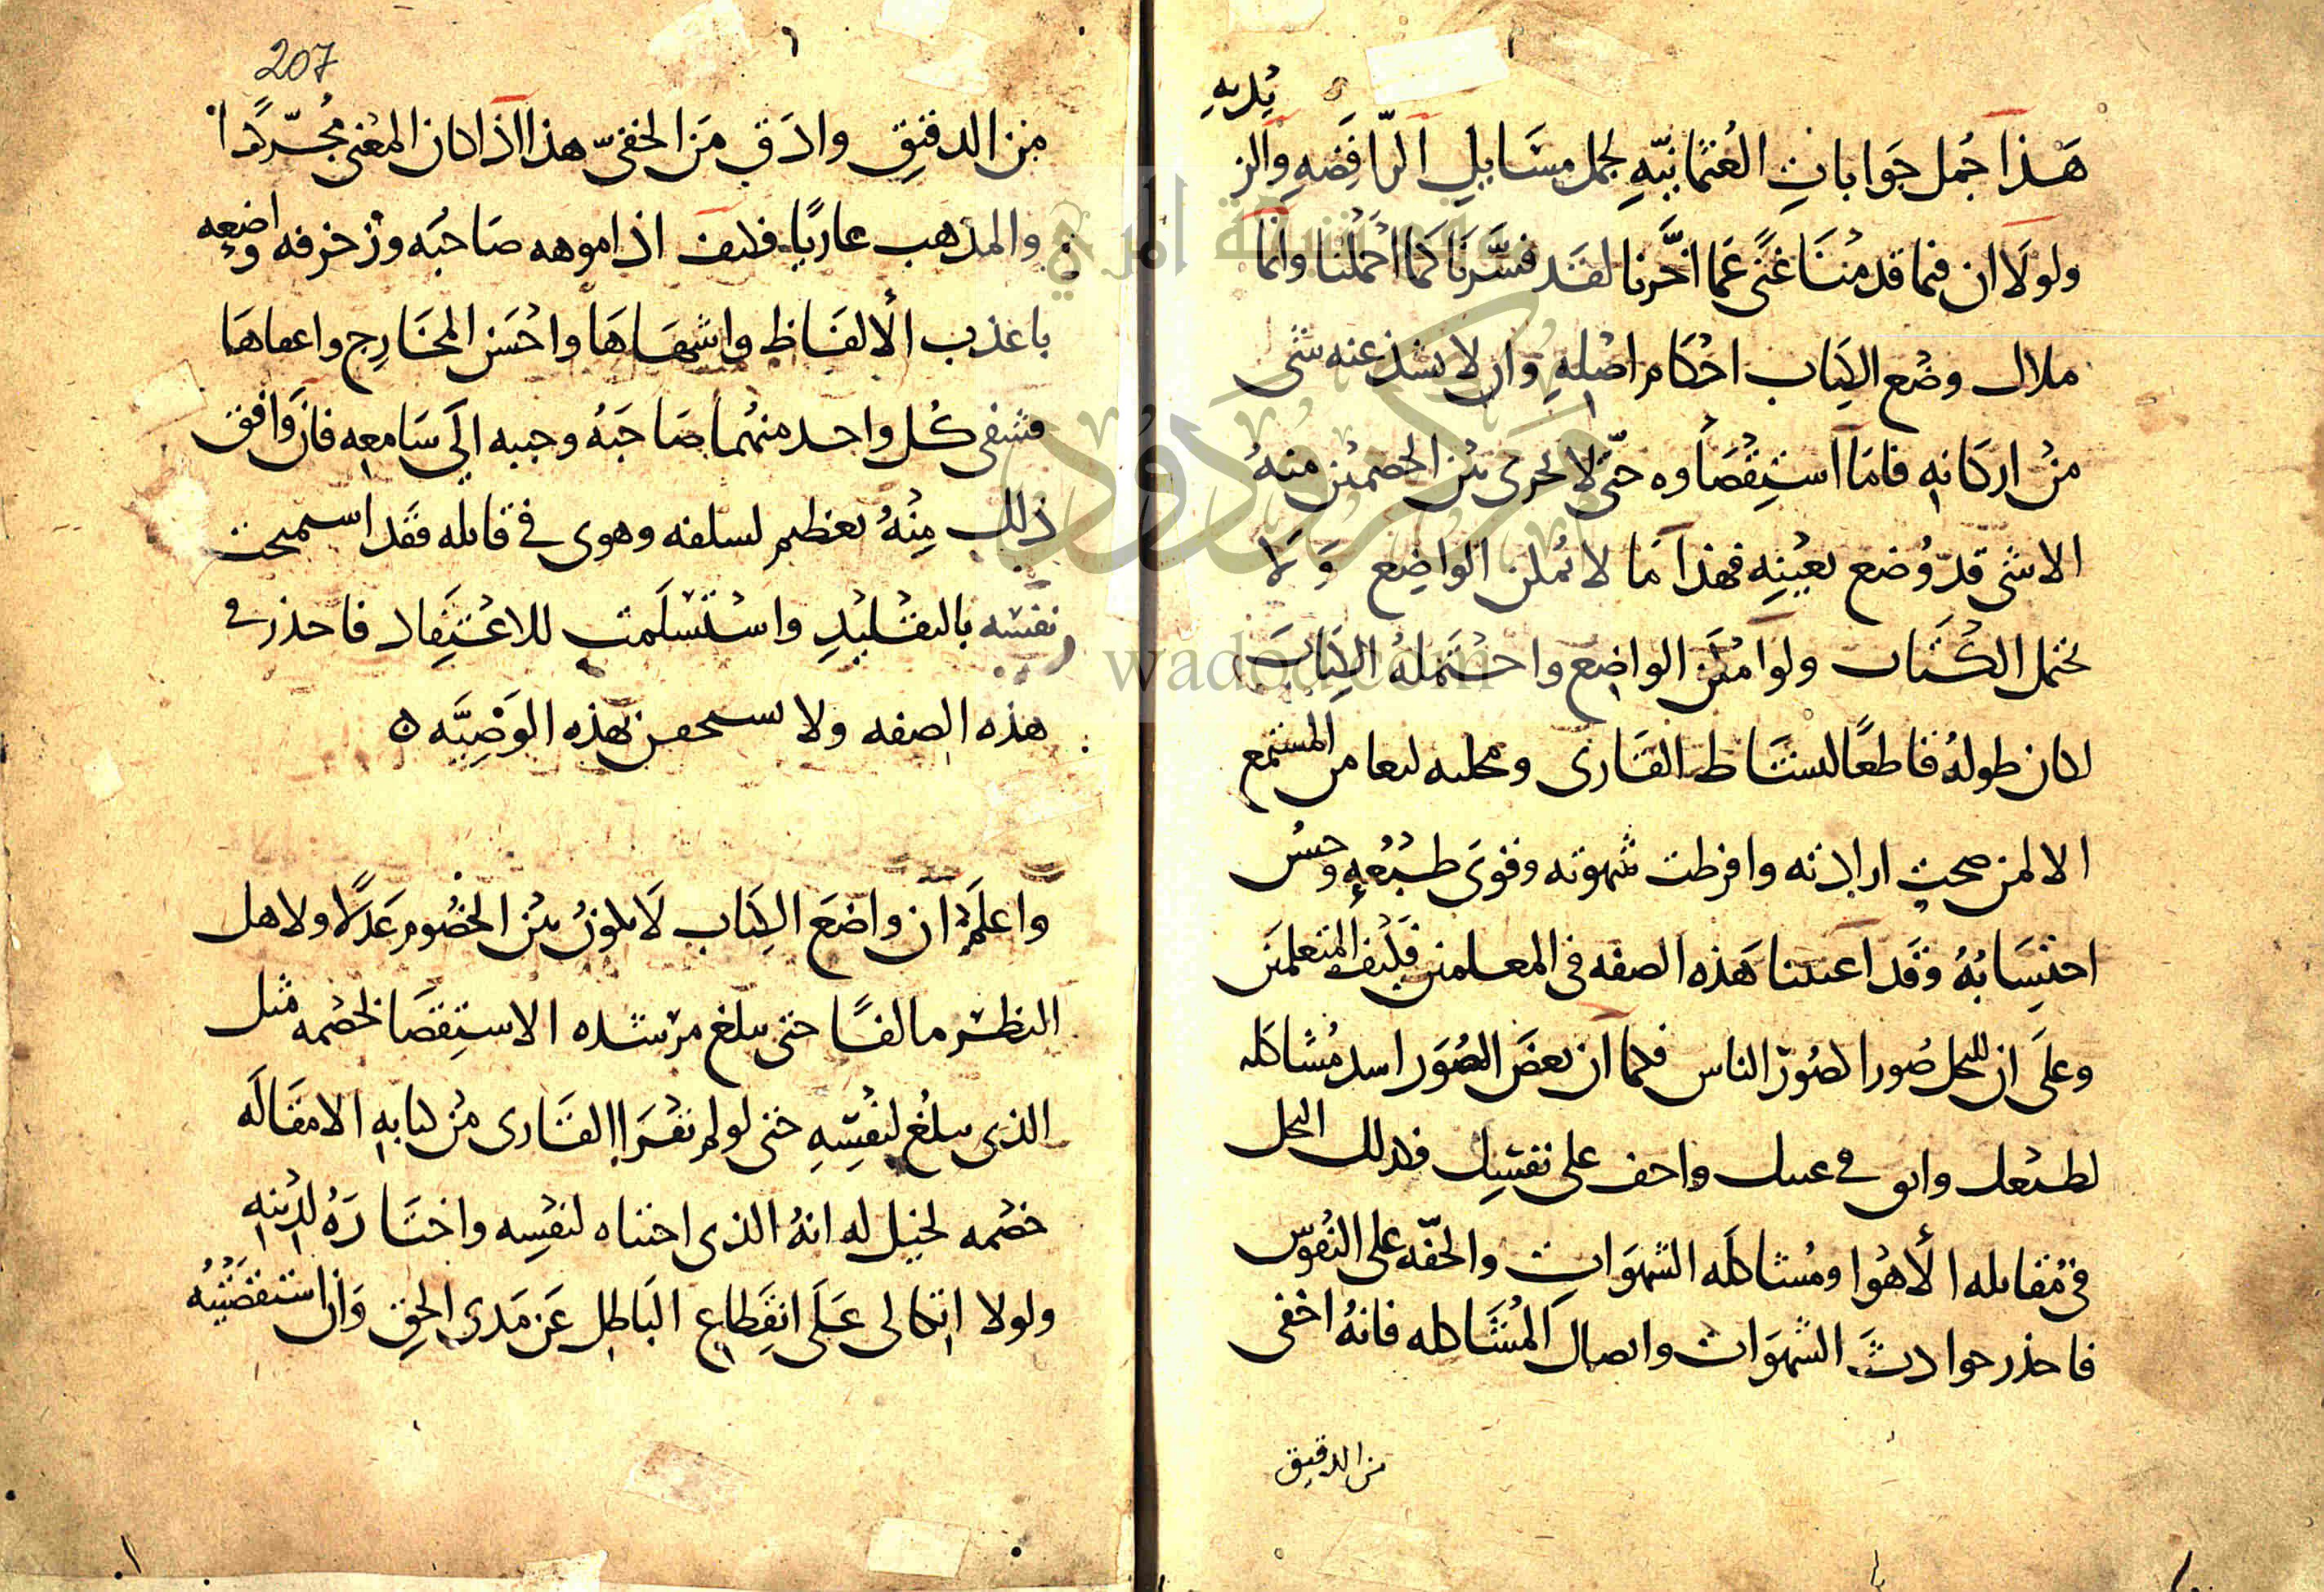 هَذا جُمل جَوَاباتِ العُثمانيّهِ لجمل مسَايلِ الرّافِضَهِ والز
يديه
ولولَا ان فيما قدمْنَا غنًى عَما اخَّرنا لفَد فسَّرنَا كما اجْملنا وانما
ملاك وضْع الكِتاب احْكام اصْلهِ وان لا يشذ عنه شى
منْ اركانهِ فامَا استِقْصَاوه حتّى لا يجرى بيْن الخصميْن منهُ
الا شى قدْ وُضع بعيْنِهِ فهذَا مَا لا يُمكن الواضِع وَلَا
يحتمل الكتَاب ولو امكَن الواضِع واحْتمَلهُ الكِتَابَ
لكان طولهُ قاطعًا لنشَاط القَارى ومجلبه لنعاس المستمع
الا لمن صحت ارادته وافرطت شهوته وقوى طبْعهِ وحسُن
احتِسَابُهُ وقَد اعتدنا هَذه الصفه فى المعلمين فكَيْف المتعلميَن
وعلَى ان للنحل صُورا كصُوَر الناس فكما ان بعضَ الصُوَر اشد مُشاكله
لطبْعك وانق فى عينك واخف على نفسِك فكذلك النحل
فى مُقابله الأهْوا ومُشاكلَه الشهوَاتِ والخفّه على النُفوْس
فاحذر حوادثَ الشهوَات واتصالَ المُشَاكله فانهُ اخفى
من الدقيق
207
مِن الدقيقِ وادَق مَن الخفىّ هذا اذا كان المعْنى مُجُرّدًا
والمذهب عاريًا فكيف اذا موهه صَاحبَه وزخرفه واضعه
باعذب الألفَاظ واشهَاهَا واحْسَن المخَارِج واعفاهَا
فشفى كُل واحد منهُما صَاحَبَهُ وحببه الَى سَامعه فان وَافق
ذلك مِنْهُ تعظيم لسلفه وهوى فى قايله فقَد اسمحت
نفسه بالتقْليْدِ واسْتسْلَمت للاعْتِقاد فاحذر فى
هذه الصفه ولا تستخفن بهذه الوَصْيَّه ٥
واعلَم ان واضعَ الكِتاب لَا يكونُ بيْن الخصُوم عَدلًا ولا هل
النظر مالفًا حتى يبلغ من شده الاستِقصَا لخصْمه مثل
الذى يبلُغ لنفْسِهِ حتى لو لم يقْرَا القَارى مْن كتابهِ الا مقَالَه
خصْمه لخيل له انهُ الذى اجتباه لنفْسه واختَارَهُ لديْنهِ
ولولا اتكالى عَلَى انقِطاع البَاطِل عَن مَدى الحق وَان استقصَيْتهُ